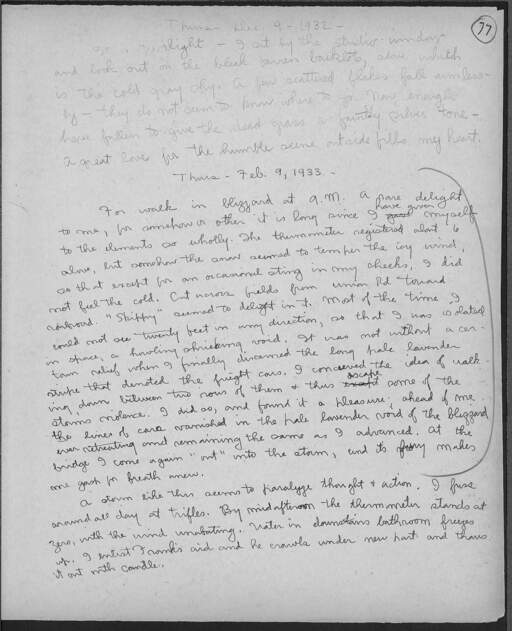 77
Thurs - Dec. 9 - 1932 -
twilight - I sat by the studio window
and look out on the bleak barren backlots, above which
is the cold gray sky. A few scattered flakes fall aimless-
ly - they do not seem to know where to go. Now enough
have fallen to give the dead grass a faintly silver tone -
A great love for the humble scene outside fills my heart.
Thurs - Feb. 9, 1933. -
For walk in blizzard at 9 A.M. A rare delight
to me, for somehow or other it is long since I have given myself
to the elements so wholly. The thermometer registered about 6
above, but somehow the snow seemed to temper the icy wind,
so that except for an occasional sting in my cheeks, I did
not feel the cold. Cut across fields from Union Rd toward
railroad. "Skippy" seemed to delight in it. Most of the time I
could not see twenty feet in any direction, so that I was isolated
in space, a howling shrieking void. It was not without a cer-
tain relief when I finally discerned the long pale lavender
stripe that denoted the freight cars. I conceived the idea of walk
ing down between two rows of them & thus escape some of the
storms violence. I did so, and found it a pleasure. ahead of me
the lines of cars vanished in the pale lavender void of the blizzard
ever retreating and remaining the same as I advanced. At the
bridge I come again "out" into the storm, and its fury makes
one gasp for breath anew.
A storm like this seems to paralyze thought & action. I fuss
around all day at trifles. By midafternoon the thermometer stands at
zero, with the wind unabating. Water in downstairs bathroom freezes
up. I enlist Frank's aid and he crawls under new part and thaws
it out with candle.